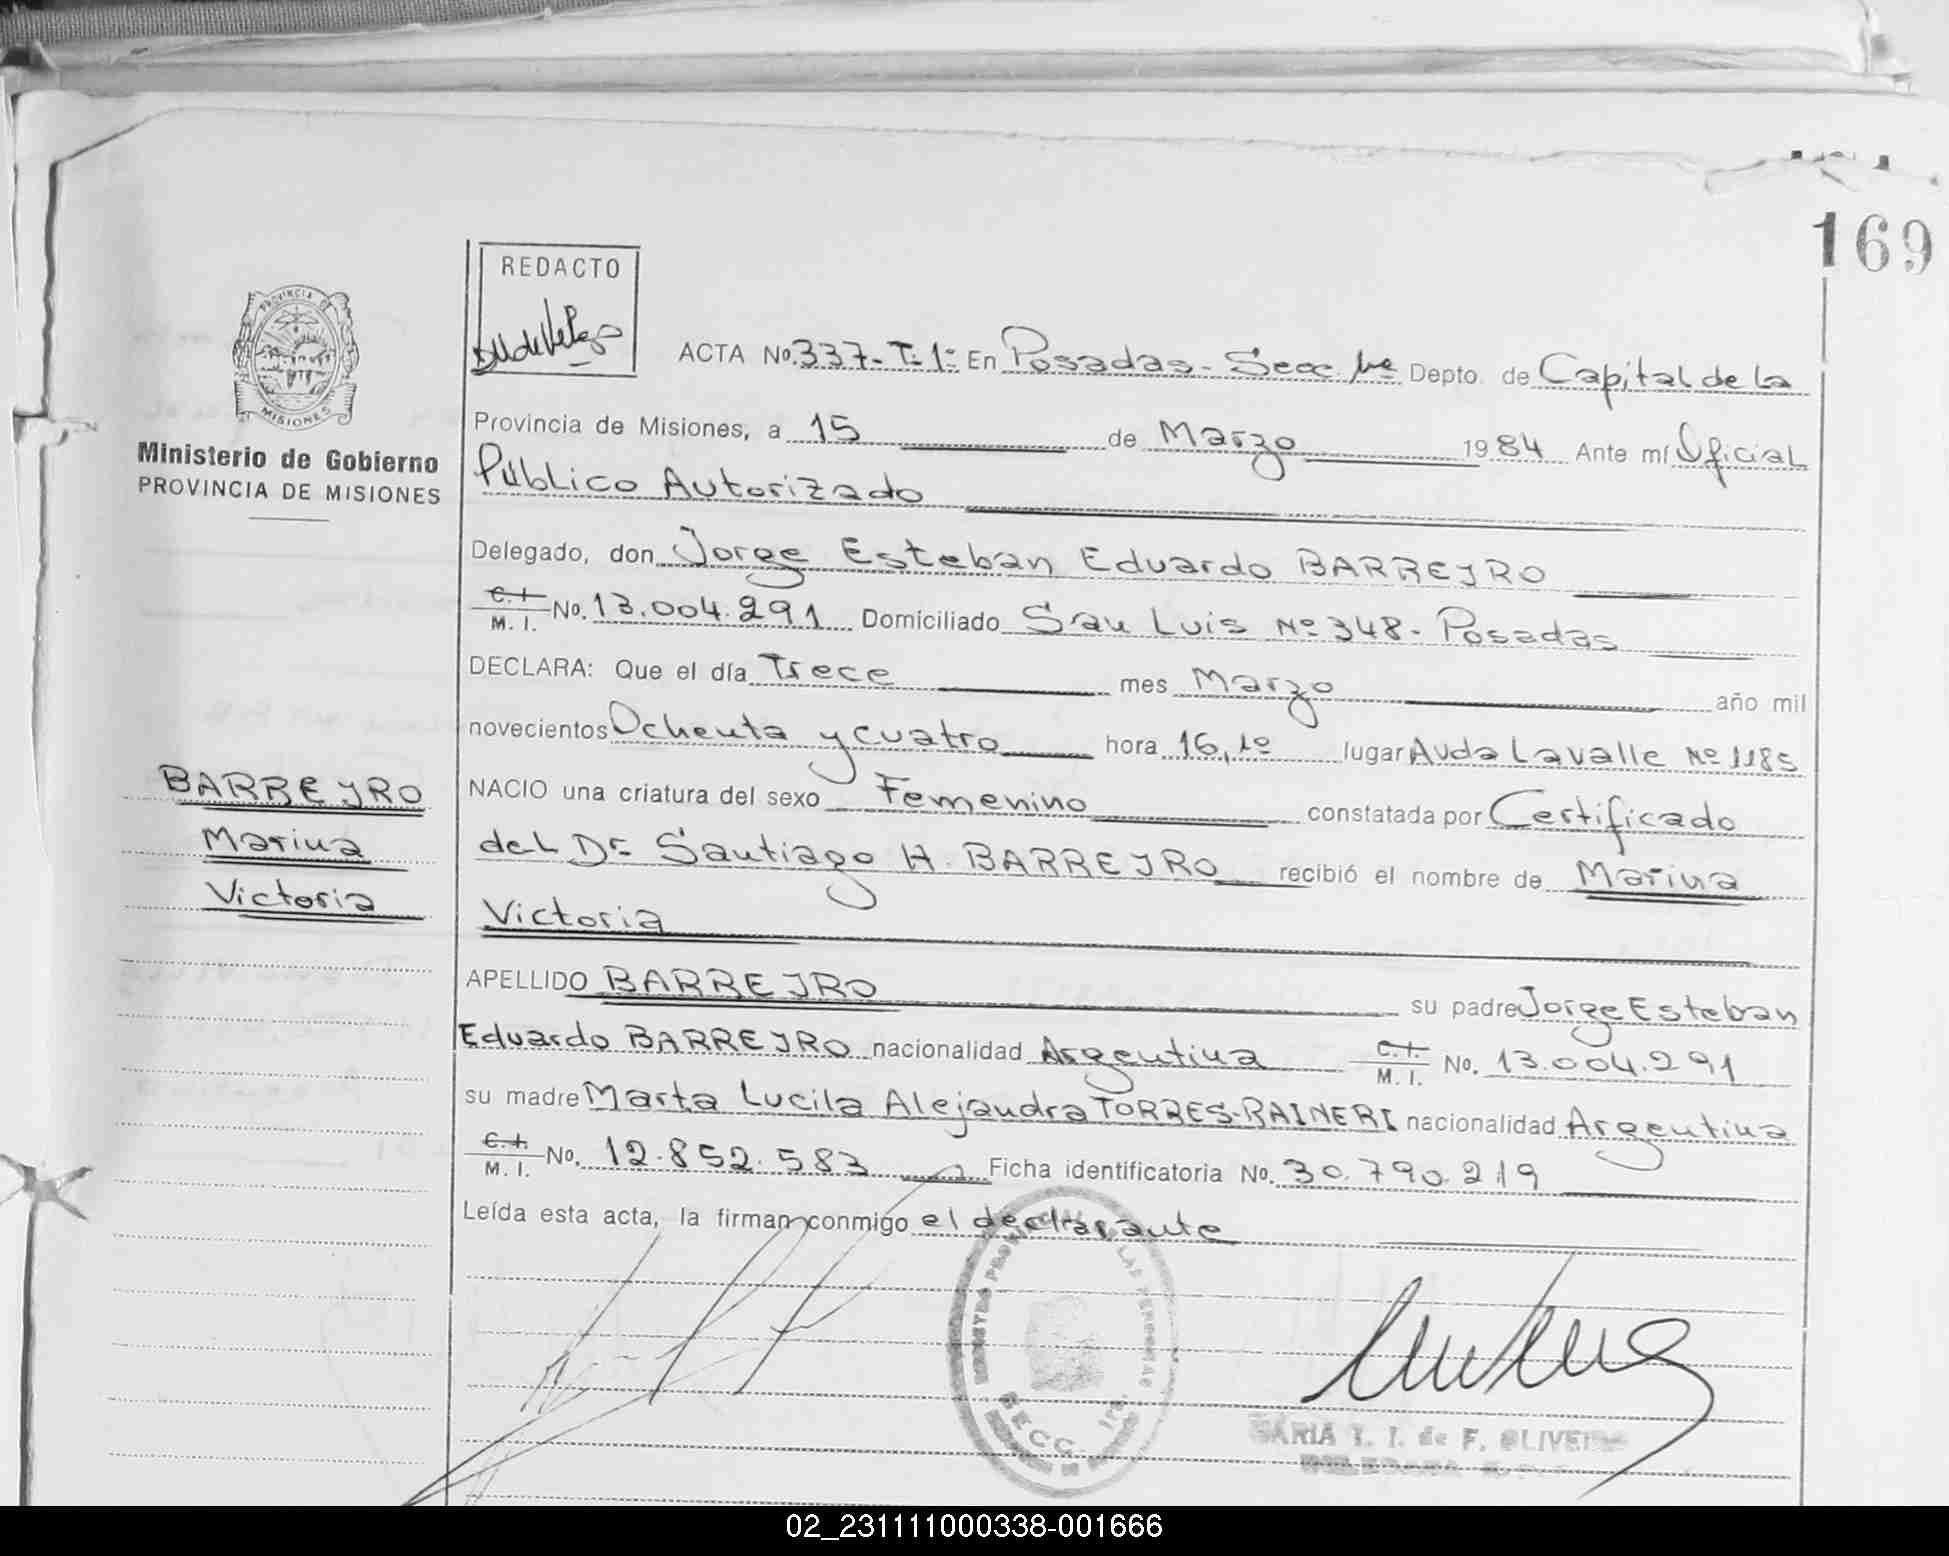 169
REDACTO
PROVINCIA DE
MISIONES
ACTA No. 337- T. 1º En Posadas - Secc. 1ra Depto. de Capital de la
Ministerio de Gobierno
PROVINCIA DE MISIONES
Provincia de Misiones, a 15 de Marzo 1984 Ante mí Oficial
Público Autorizado
Delegado, don Jorge Esteban Eduardo BARREJRO
C.I. M. I. No. 13.004.291 Domiciliado San Luis Nº 348 - Posadas
DECLARA: Que el día Trece mes Marzo año mil
novecientos Ochenta y cuatro hora 16,10 lugar Avda Lavalle Nº 1185
BARREJRO
Marina
Victoria
NACIO una criatura del sexo Femenino constatada por Certificado
del Dr Santiago H. BARREJRO recibió el nombre de Marina
Victoria
APELLIDO BARREJRO su padre Jorge Esteban
Eduardo BARREJRO nacionalidad Argentina C.I. M. I. No. 13.004.291
su madre Marta Lucila Alejandra TORRES-RAINERI nacionalidad Argentina
C.I. M. I. No. 12.852.583 Ficha identificatoria No. 30.790.219
Leída esta acta, la firman conmigo el declarante
LAS PERSONAS
SECC. 1ra.
MARIA T. I. de F. OLIVEIRA
02_231111000338-001666